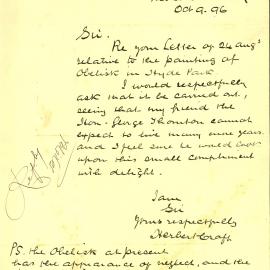 Oct 9. 96
Sir.
Re your Letter of 24 augt
relative to the painting of
Obelisk in Hyde Park
I would respectfully
ask that it be carried out,
seeing that my friend the
Hon. George Thornton cannot
expect to live many more years.
and I feel sure he would look
upon this small compliment
with delight.
I am
Sir
Yours respectfully
Herbert Croft
PS. the Obelisk at present
has the appearance of neglect, and the